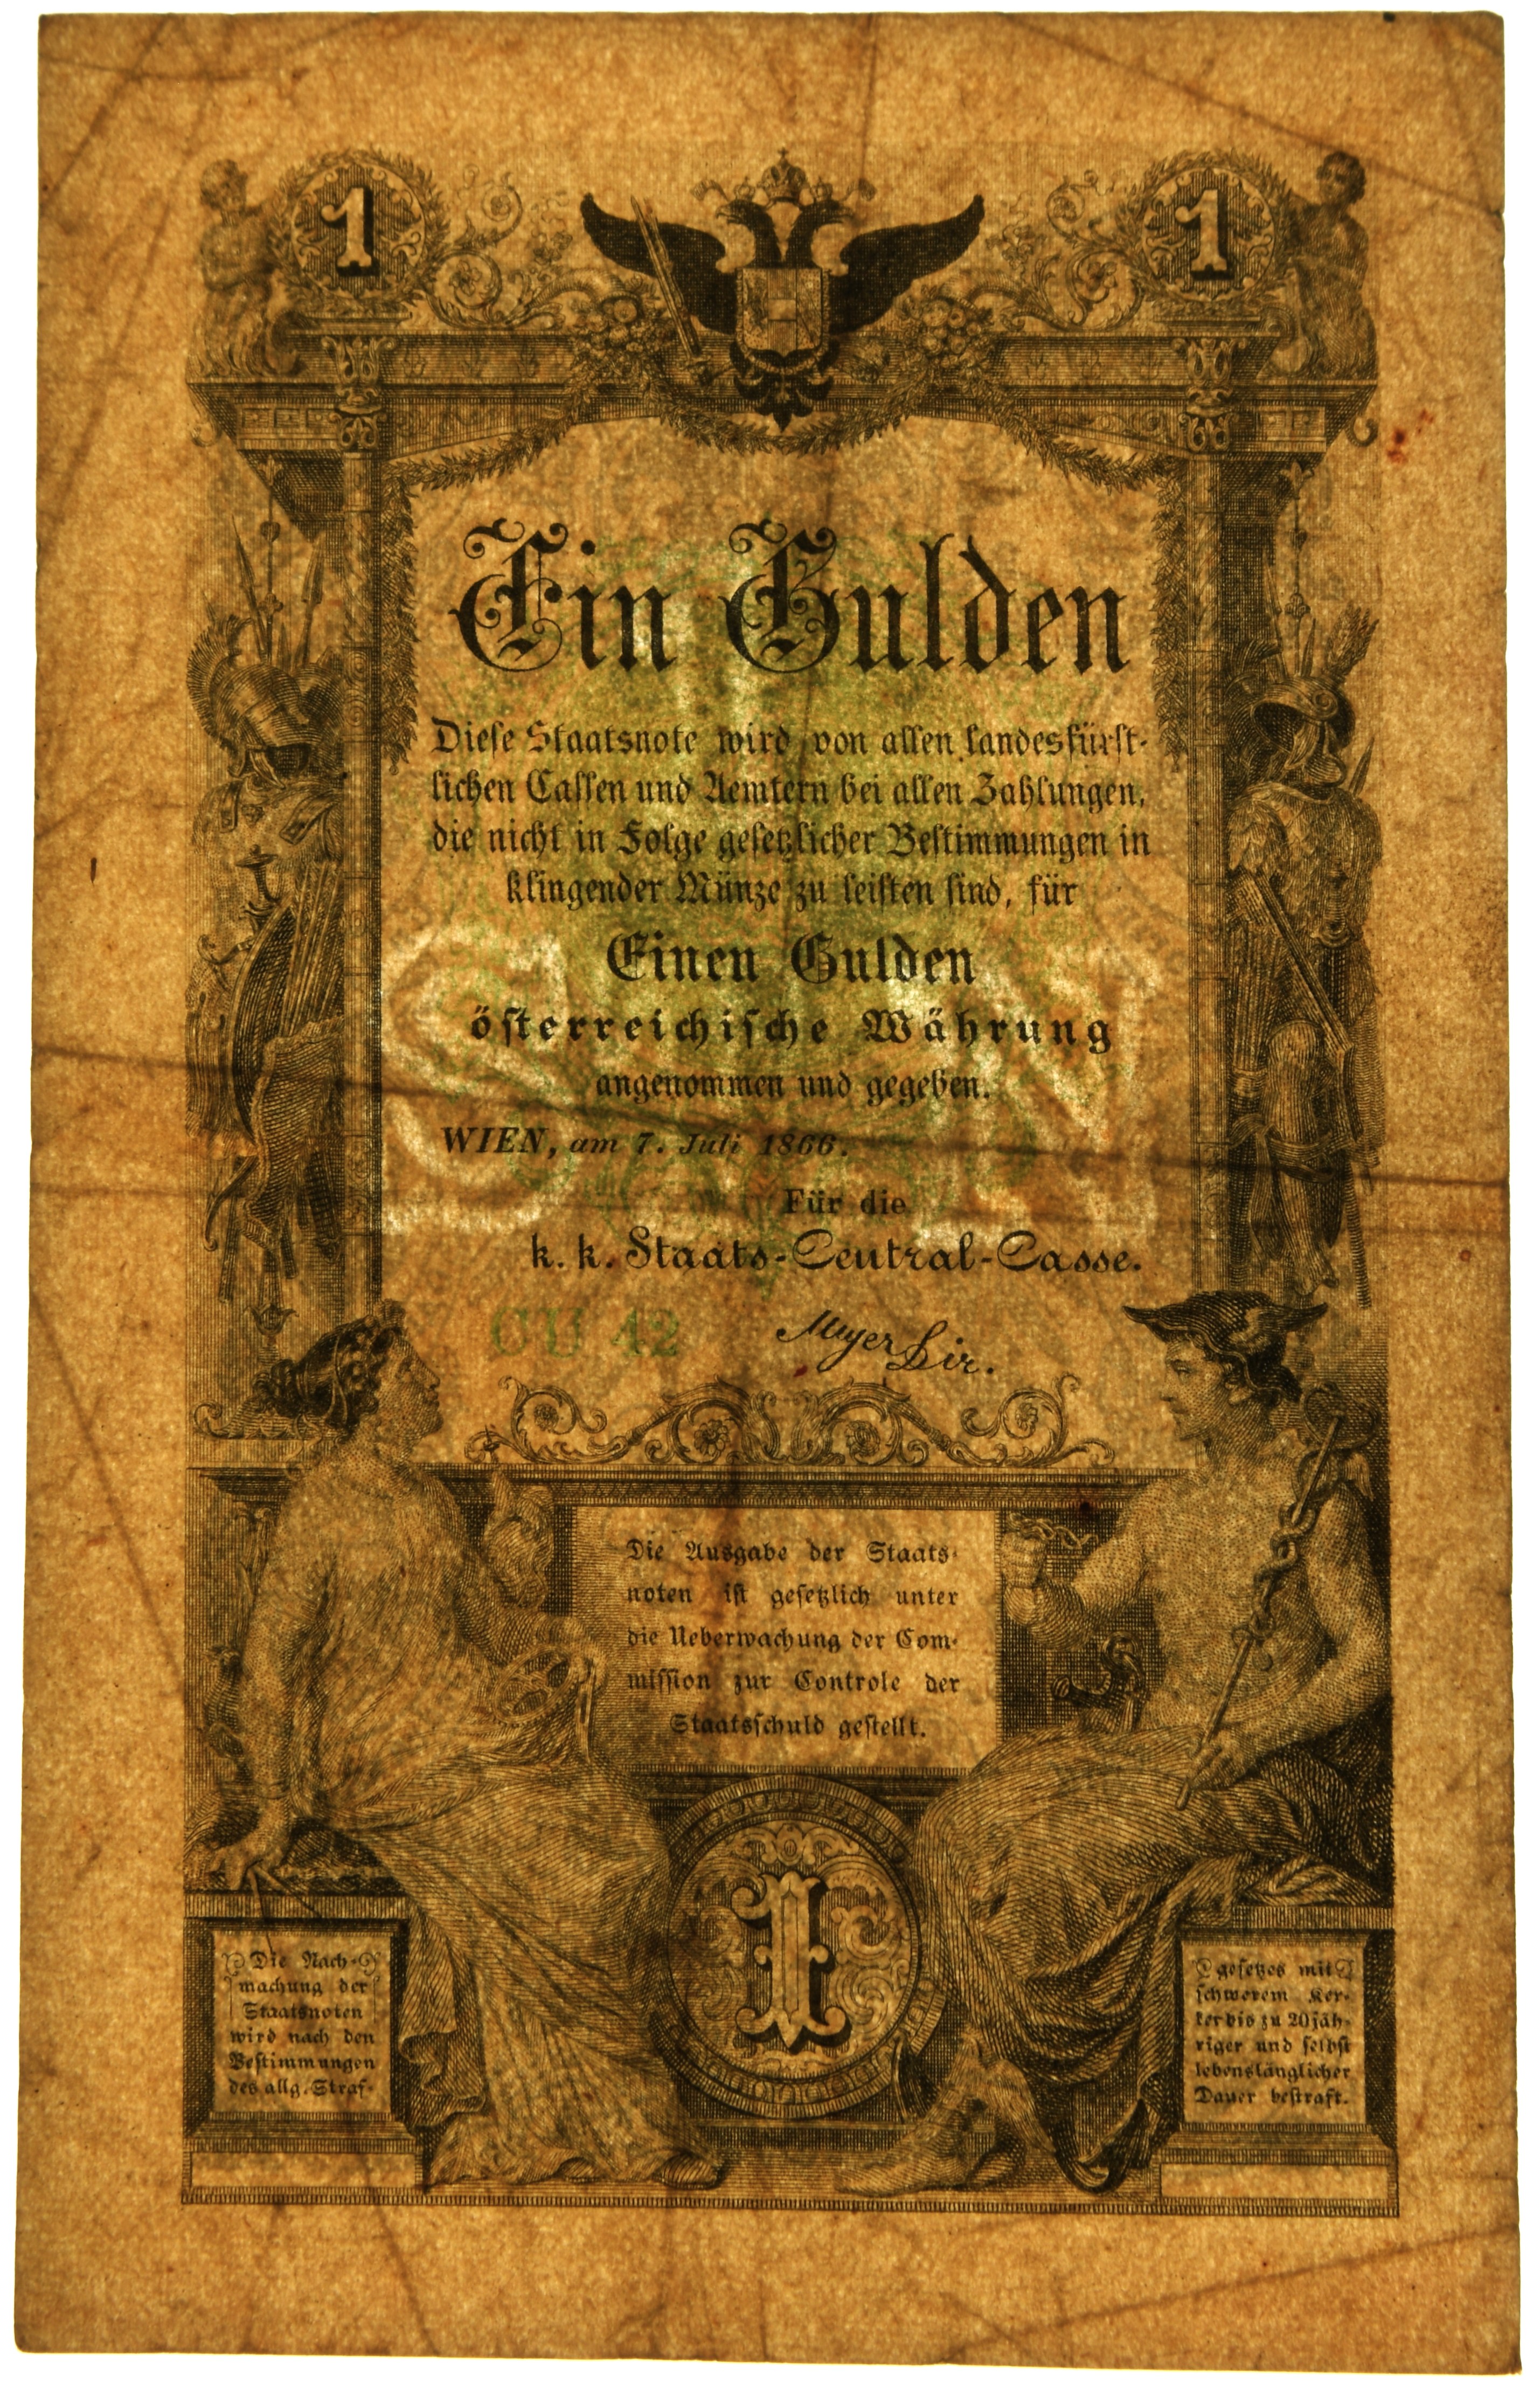 1
1
Ein Gulden
Diese Staatsnote wird von allen landesfürst-
lichen Cassen und Aemtern bei allen Zahlungen,
die nicht in Folge gesetzlicher Bestimmungen in
klingender Münze zu leisten sind, für
Einen Gulden
österreichische Währung
angenommen und gegeben.
WIEN, am 7. Juli 1866.
Für die
k. k. Staats-Central-Casse.
CU 42
Mayer Dir.
Die Ausgabe der Staats-
noten ist gesetzlich unter
die Ueberwachung der Com-
mission zur Controle der
Staatsschuld gestellt.
1
Die Nach-
machung der
Staatsnoten
wird nach den
Bestimmungen
des allg. Straf-
gesetzes mit
schwerem Ker-
ker bis zu 20 jäh-
riger und selbst
lebenslänglicher
Dauer bestraft.